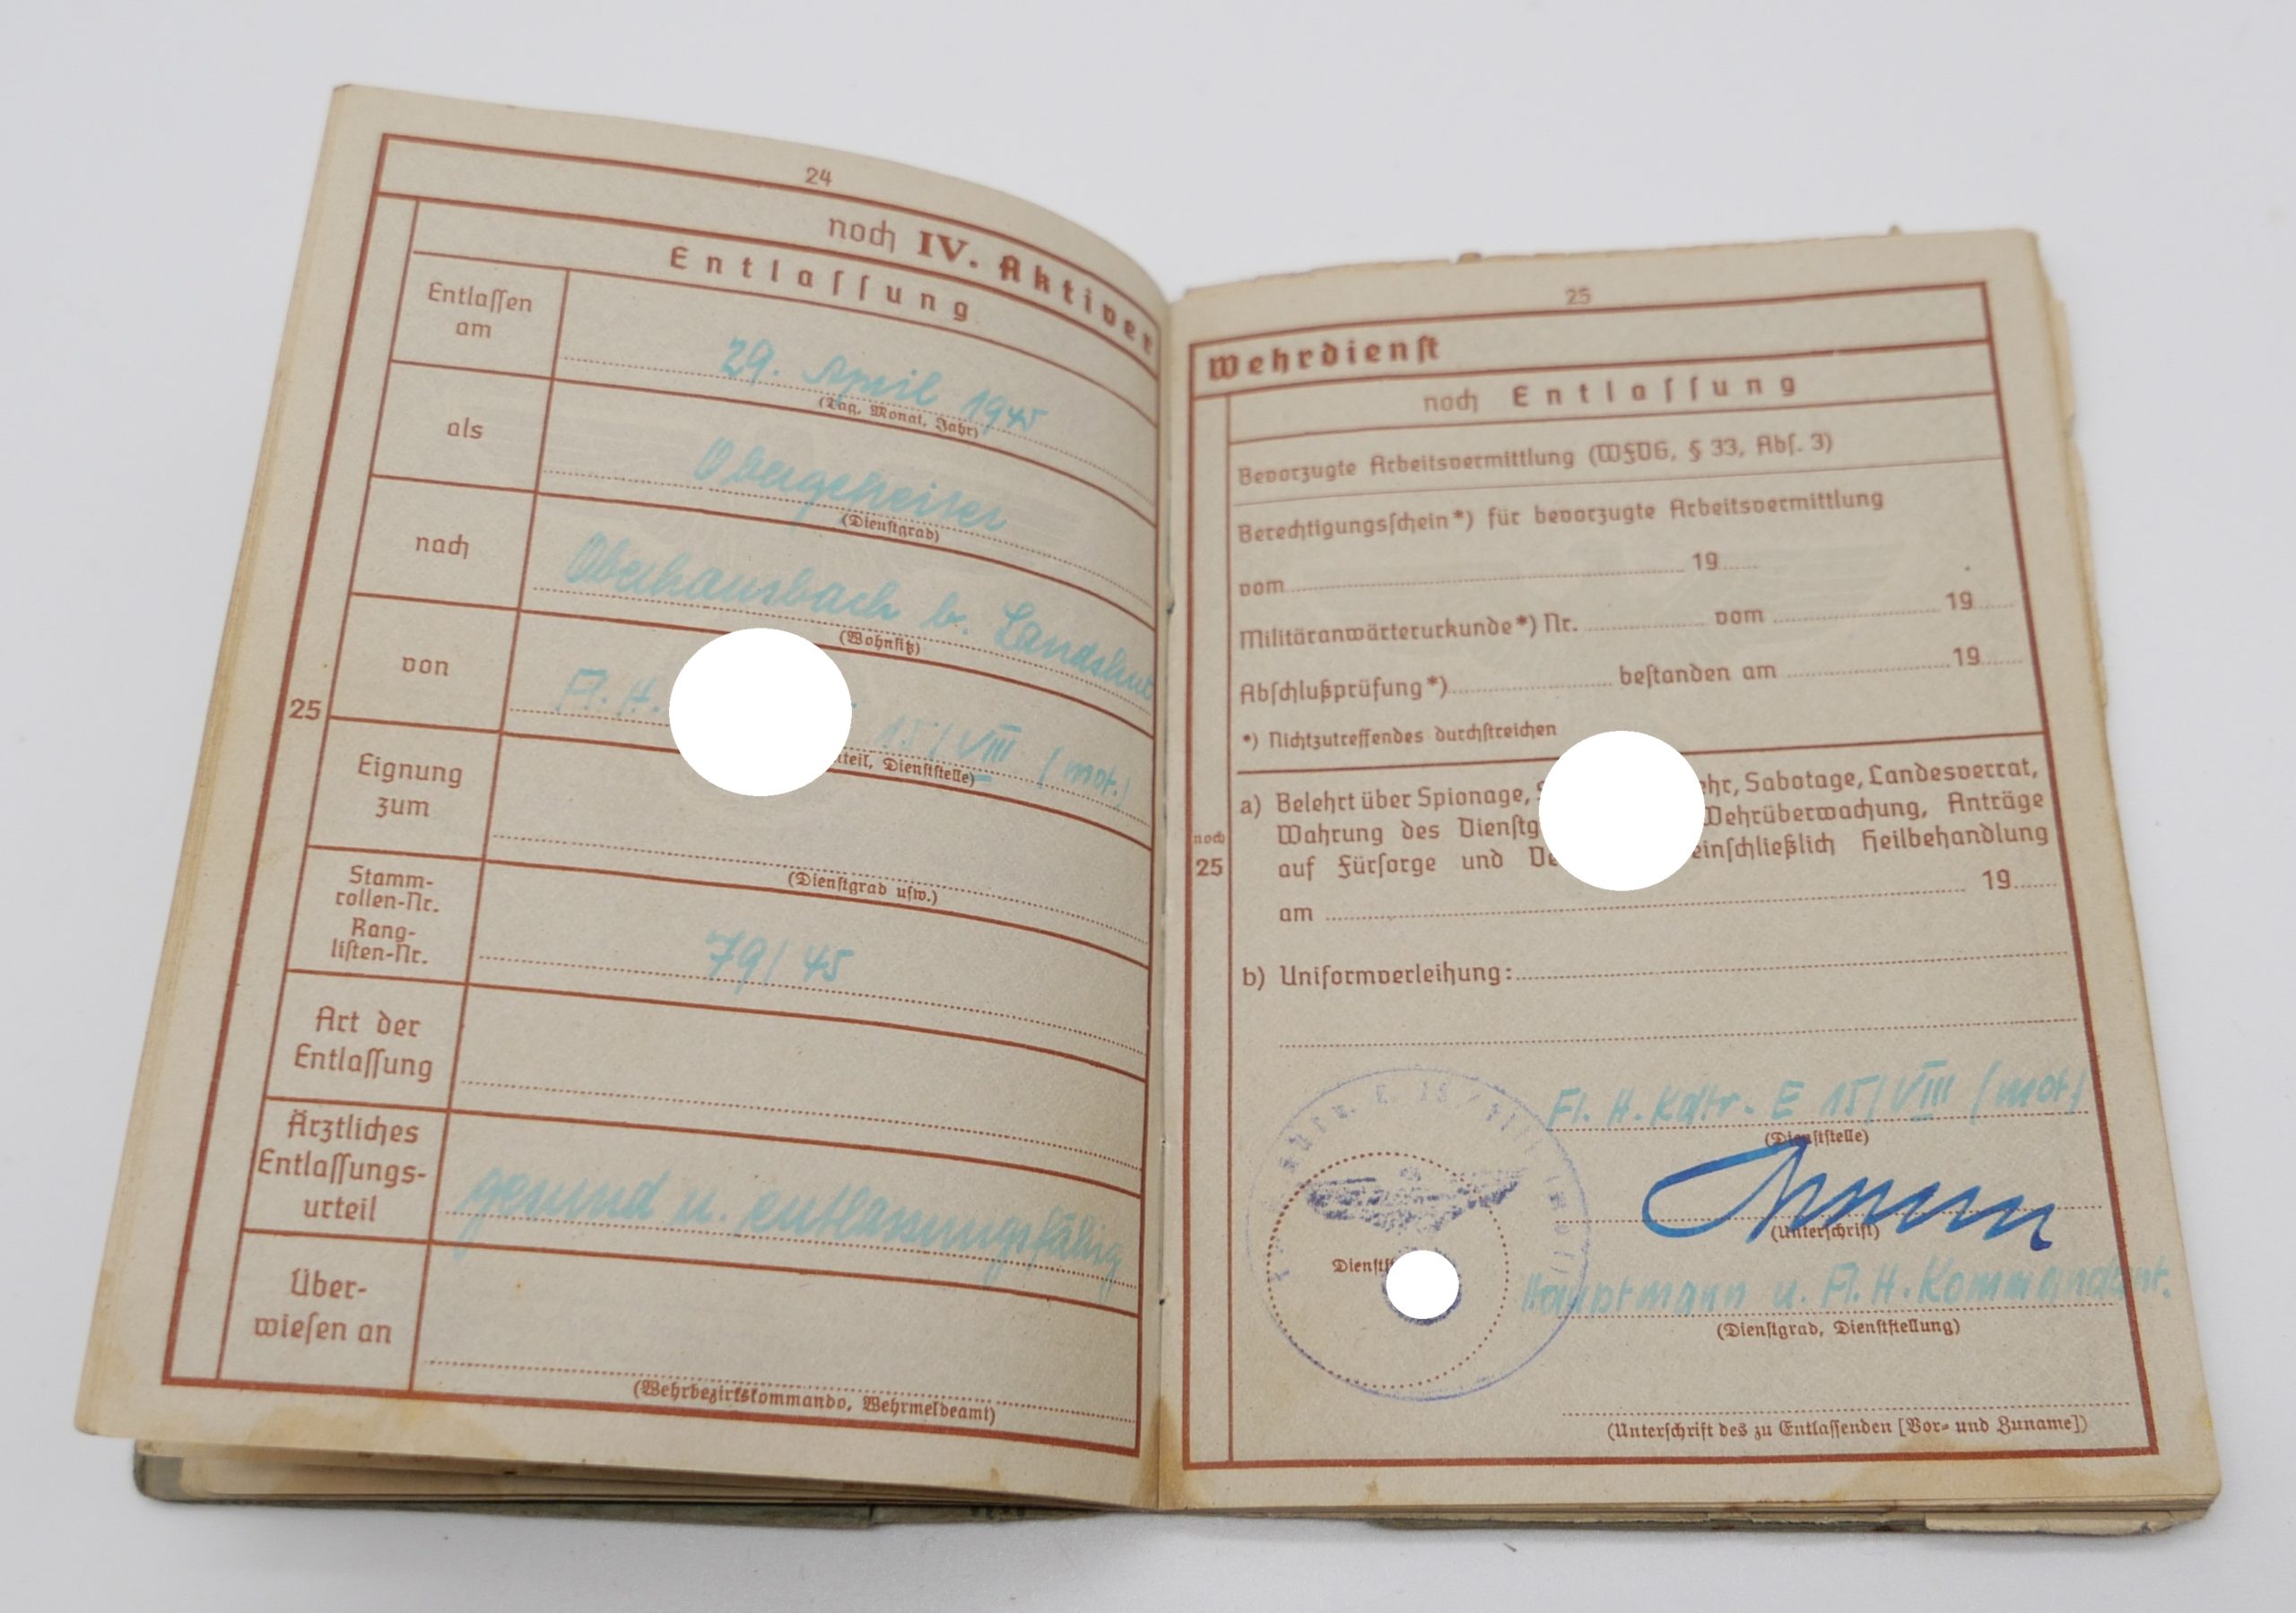 24
noch IV. Aktiver
Entlassung
Entlassen am
29. April 1945
(Tag, Monat, Jahr)
als
Obergefreiter
(Dienstgrad)
nach
b. Landshut
(Wohnsitz)
von
Fl. H. 15/VIII (mot.)
teil, Dienststelle)
25
Eignung zum
(Dienstgrad usw.)
Stamm-
rollen-Nr.
Rang-
listen-Nr.
79/45
Art der
Entlassung
Ärztliches
Entlassungs-
urteil
gesund u. entlassungsfähig
Über-
wiesen an
(Wehrbezirkskommando, Wehrmeldeamt)
25
Wehrdienst
noch Entlassung
Bevorzugte Arbeitsvermittlung (WFVG, § 33, Abs. 3)
Berechtigungsschein*) für bevorzugte Arbeitsvermittlung
vom 19
Militäranwärterurkunde*) Nr. vom 19
Abschlußprüfung*) bestanden am 19
*) Nichtzutreffendes durchstreichen
noch
25
a) Belehrt über Spionage, ehr, Sabotage, Landesverrat,
Wahrung des Dienstg Wehrüberwachung, Anträge
auf Fürsorge und Ve einschließlich Heilbehandlung
am 19
b) Uniformverleihung:
Fl. H. Kdtr. E 15/VIII (mot)
(Dienststelle)
(Unterschrift)
Dienstst
Hauptmann u. Fl. H. Kommandant.
(Dienstgrad, Dienststellung)
(Unterschrift des zu Entlassenden [Vor- und Zuname])